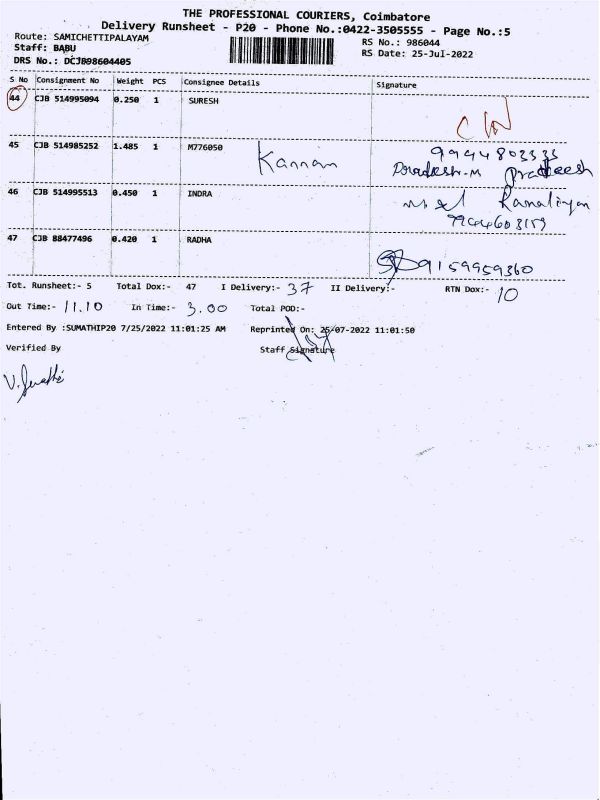 THE PROFESSIONAL COURIERS, Coimbatore
Delivery Runsheet - P20 - Phone No.:0422-3505555 - Page No.:5
Route: SAMICHETTIPALAYAM
RS No.: 986044
Staff: BABU
RS Date: 25-Jul-2022
DRS No.: DCJB98604405
S No Consignment No Weight PCS Consignee Details Signature
44 CJB 514995094 0.250 1 SURESH
45 CJB 514985252 1.485 1 M776050 Kannan 9994803335
Pradeesh.M Pradeesh
46 CJB 514995513 0.450 1 INDRA
47 CJB 88477496 0.420 1 RADHA
9159959360
Tot. Runsheet:- 5 Total Dox:- 47 I Delivery:- 37 II Delivery:- RTN Dox:- 10
Out Time:- 11.10 In Time:- 3.00 Total POD:-
Entered By :SUMATHIP20 7/25/2022 11:01:25 AM Reprinted On: 25-07-2022 11:01:50
Verified By Staff Signature